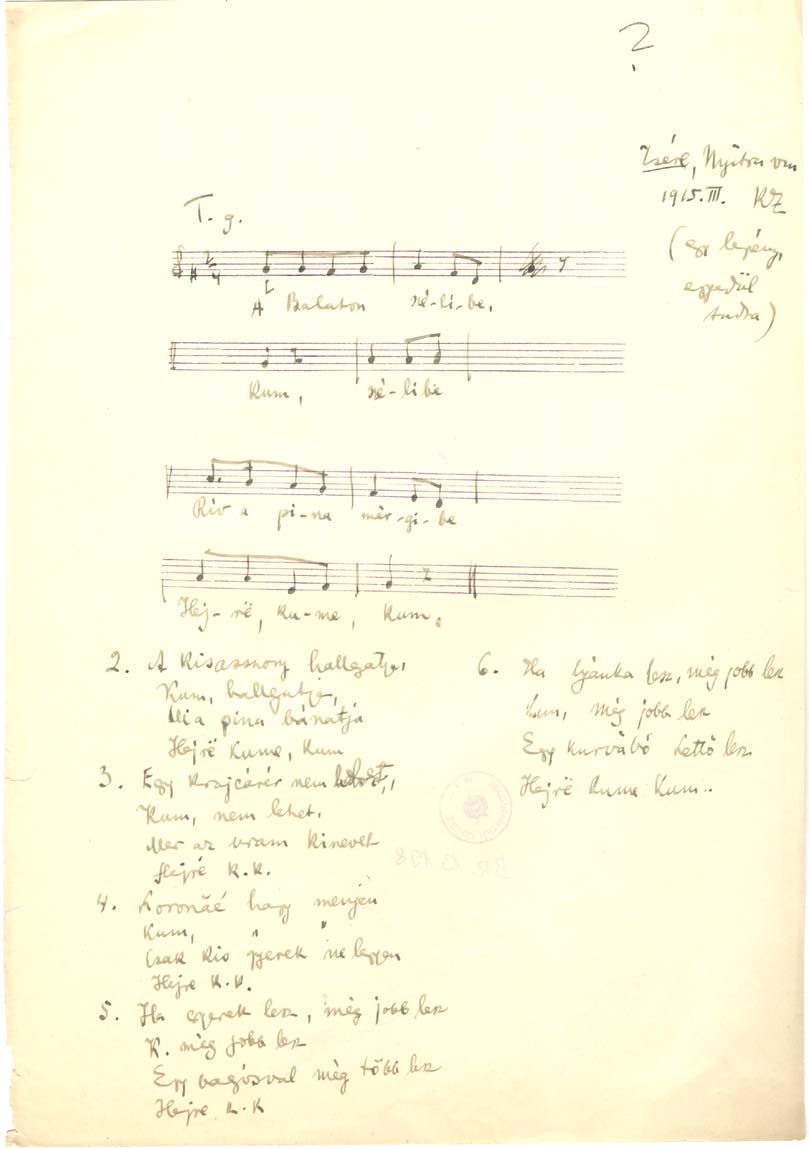 ?
Zsére, Nyitra vm
1915.III. KZ
(egy legény,
egyedül
tudta)
T. g.
A Balaton szé-li-be,
Kum, szé-libe
Rív a pi-na mér-gi-be
Hej-rë, ku-me, kum.
2. A kisasszony hallgatja,
Kum, hallgatja,
Mi a pina bánatja
Hejrë Kume, Kum
3. Egy krajcárér nem lehet,
Kum, nem lehet.
Mer az uram kinevet
Hejrë K.K.
4. Koronáé hagy menjen
Kum, " "
Csak kis gyerek ne legyen
Hejre K.K.
5. Ha gyerek lesz, még jobb lesz
K. még jobb lesz
Egy bagósval még több lesz
Hejre K.K
6. Ha ljánka lesz, még jobb lesz
Kum, még jobb lesz
Egy kurvábó kettő lesz
Hejrë Kume Kum..